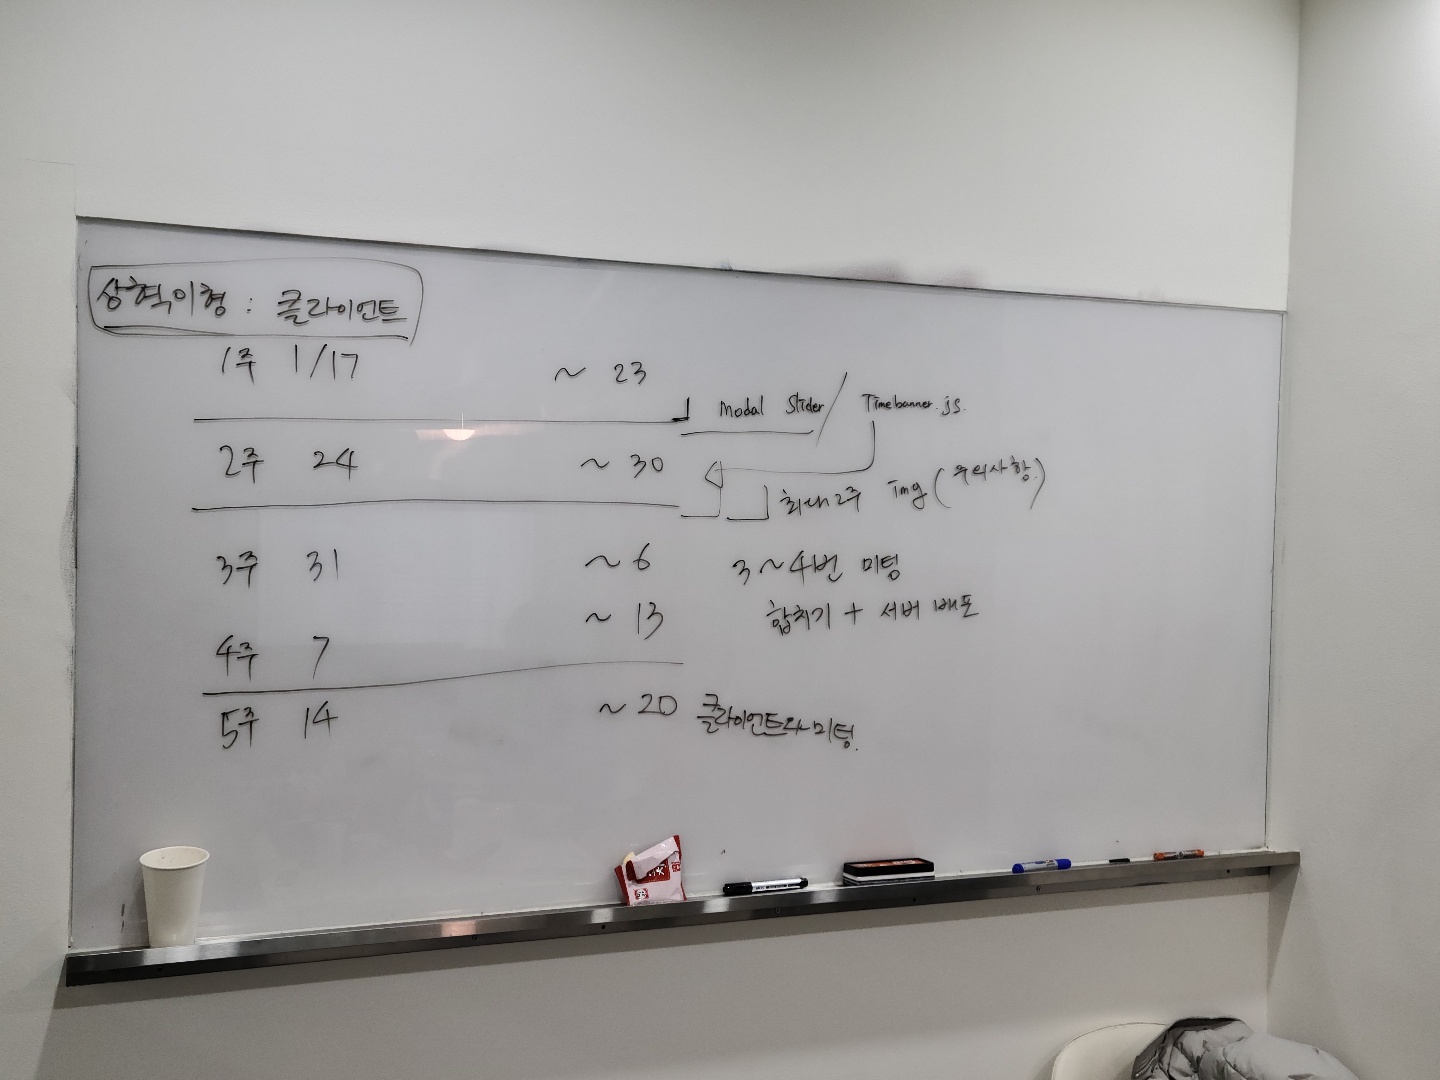 상혁이형 : 클라이언트
1주 1/17 ~ 23
Modal Slider / Timebanner.js.
2주 24 ~ 30
최대 2주 img (주의사항)
3주 31 ~ 6 3~4번 미팅
~ 13 합치기 + 서버 배포
4주 7
5주 14 ~ 20 클라이언트와 미팅.